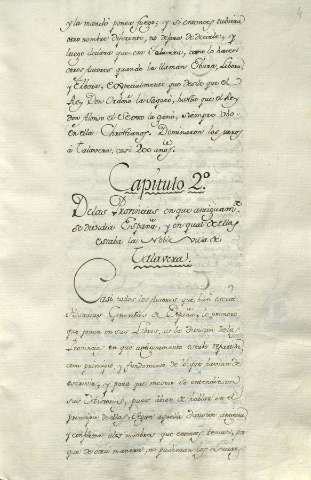 4
y la mandó poner fuego; y si entonces tubiera
otro nombre diferente, no dejara de decirle, y
luego dijera que era Talavera, como lo hacen
otros Autores quando la llaman Ebura, Libora,
y Elbora, especialmente que desde que el
Rey Don Ordoño la saqueó, hasta que el Rey
Don Alonso el Sexto la ganó, siempre hubo
en ella Christianos. Dominaron los moros
á Talavera, casi 400 años.
Capitulo 2.º
De las Provincias en que antiguam.te
se dividia España, y en qual de ellas
estaba la Noble Villa de
Talavera.
Casi todos los Autores que han escrito
Historias Generales de España, lo primero
que ponen en sus Libros, es la division de las
Provincias en que antiguamente estaba repartida,
como principio, y fundamento de lo que havian de
escrivir, y para que mejor se entendiesen
sus Historias, pues iban á hablar en el
principio de ellas, segun aquella division antigua
y conforme á los nombres que entonces tenian, por
que de otra manera no pudieran los